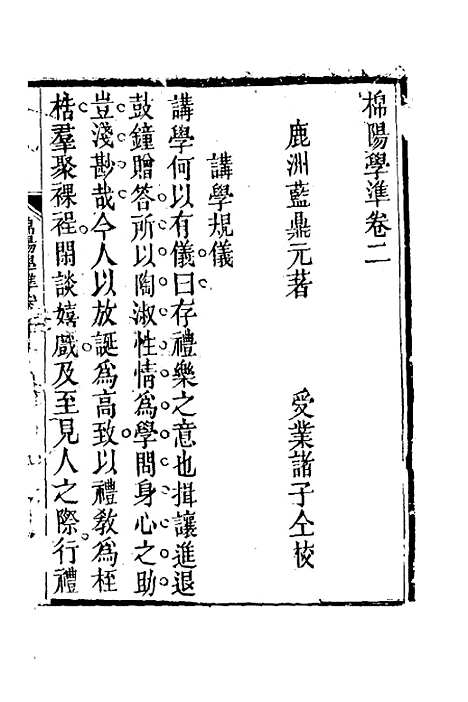 棉陽學準卷二
鹿洲藍鼎元著 受業諸子仝校
講學規儀
講學何以有儀曰存禮樂之意也揖讓進退
鼓鐘贈答所以陶淑性情為學問身心之助
豈淺尠哉今人以放誕為高致以禮教為桎
梏羣聚裸裎閒談嬉戲及至見人之際行禮